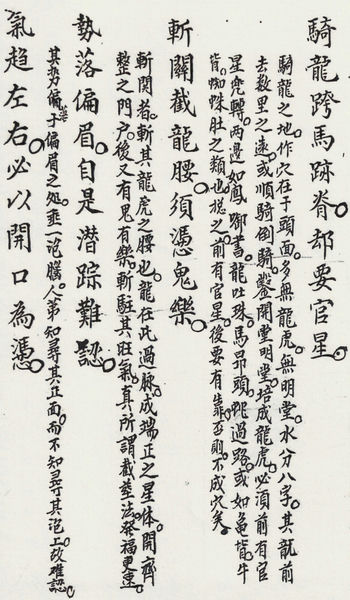 騎龍跨馬跡脊却要官星
騎龍之地作穴在于頭面多無龍虎無明堂水分八字其龍前
去数里之速或順騎倒騎鑿開堂明堂培成龍虎必須前有官
星兜轉两邊如鳳啣書龍吐珠馬昂頭跳過路或如龜背牛
背蜘蛛肚之類也総之前有官星後要有靠否則不成穴矣
斬關截龍腰須憑鬼樂
斬関者斬其龍虎之腰也龍在此過脉成端正之星体開齊
整之門户後又有鬼有樂斬駐其旺氣真所謂截法發福更速
勢落偏眉自是潜踪難認
其势偏于偏眉之处垂一泡腦人第知尋其正面而不知尋其泡上故难認
氣趋左右必以開口為憑